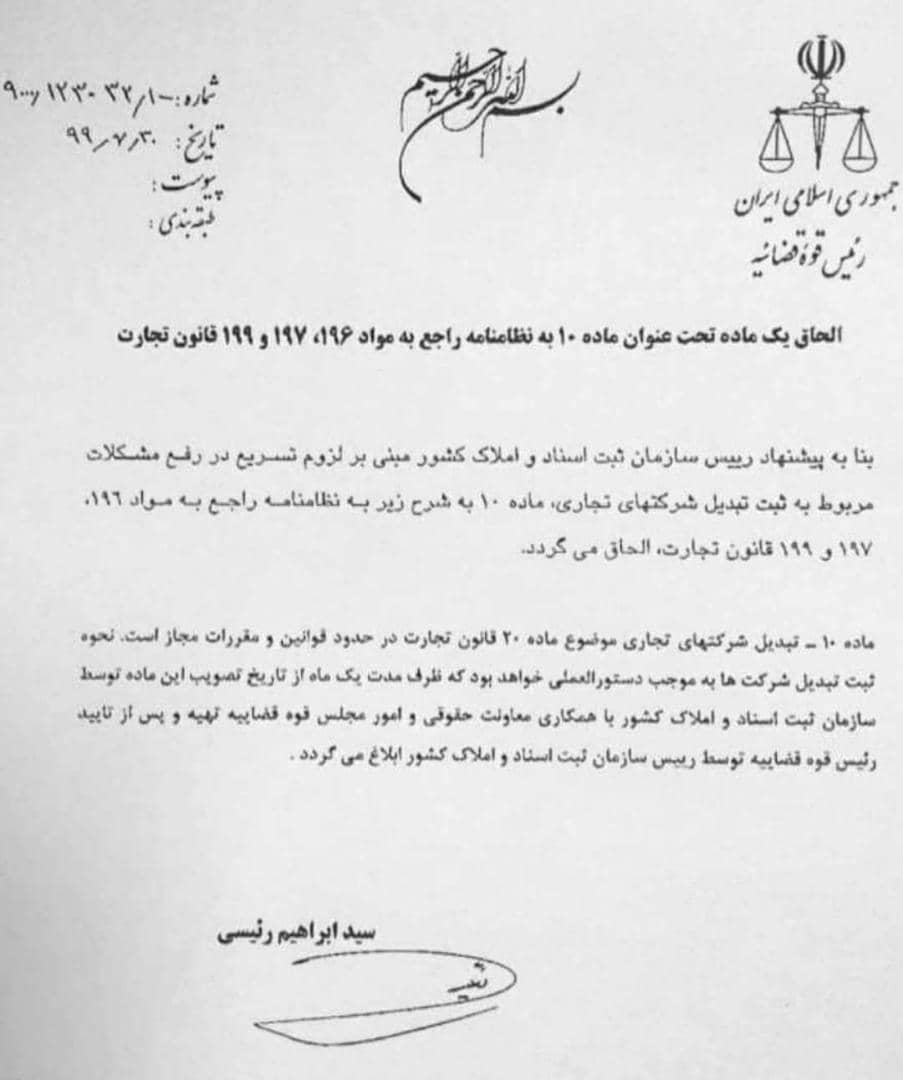 بسم الله الرحمن الرحیم
جمهوری اسلامی ایران
رئیس قوهٔ قضائیه
شماره: ۹۰۰۰/۱۲۳۰۳۲/۱۰۰
تاریخ: ۹۹/۷/۳۰
پیوست:
طبقه‌بندی:
الحاق یک ماده تحت عنوان ماده ۱۰ به نظامنامه راجع به مواد ۱۹۶، ۱۹۷ و ۱۹۹ قانون تجارت
بنا به پیشنهاد رییس سازمان ثبت اسناد و املاک کشور مبنی بر لزوم تسریع در رفع مشکلات
مربوط به ثبت تبدیل شرکتهای تجاری، ماده ۱۰ به شرح زیر به نظامنامه راجع به مواد ۱۹۶،
۱۹۷ و ۱۹۹ قانون تجارت، الحاق می گردد.
ماده ۱۰ ـ تبدیل شرکتهای تجاری موضوع ماده ۲۰ قانون تجارت در حدود قوانین و مقررات مجاز است. نحوه
ثبت تبدیل شرکت ها به موجب دستورالعملی خواهد بود که ظرف مدت یک ماه از تاریخ تصویب این ماده توسط
سازمان ثبت اسناد و املاک کشور با همکاری معاونت حقوقی و امور مجلس قوه قضاییه تهیه و پس از تایید
رئیس قوه قضاییه توسط رییس سازمان ثبت اسناد و املاک کشور ابلاغ می گردد .
سید ابراهیم رئیسی